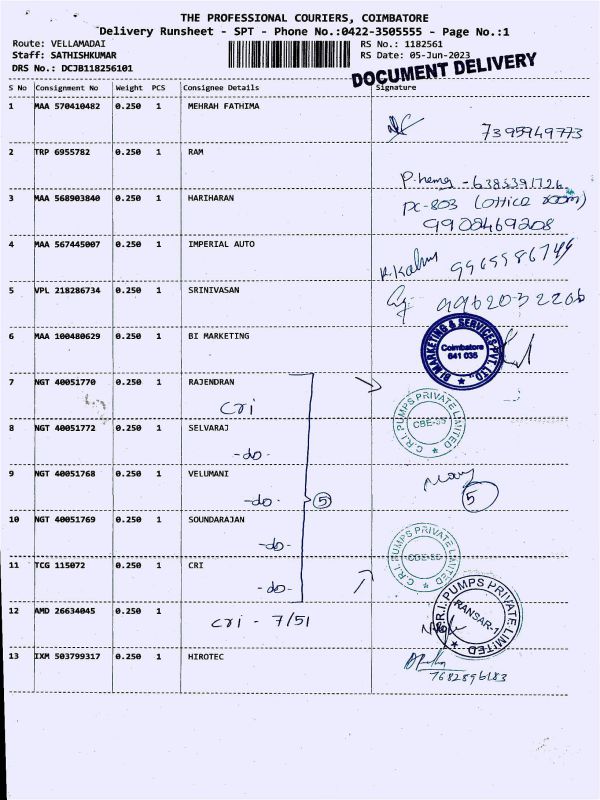 THE PROFESSIONAL COURIERS, COIMBATORE
Delivery Runsheet - SPT - Phone No.:0422-3505555 - Page No.:1
Route: VELLAMADAI
RS No.: 1182561
Staff: SATHISHKUMAR
RS Date: 05-Jun-2023
DRS No.: DCJB118256101
DOCUMENT DELIVERY
S No Consignment No Weight PCS Consignee Details Signature
1 MAA 570410482 0.250 1 MEHRAH FATHIMA
7395949773
2 TRP 6955782 0.250 1 RAM
P. hema - 6385391726
3 MAA 568903840 0.250 1 HARIHARAN
PC-803 (Office room)
9908469208
4 MAA 567445007 0.250 1 IMPERIAL AUTO
5 VPL 218286734 0.250 1 SRINIVASAN
9962032206
6 MAA 100480629 0.250 1 BI MARKETING
BI MARKETING & SERVICES PVT. LTD
Coimbatore
641 035
7 NGT 40051770 0.250 1 RAJENDRAN
cri
C.R.I. PUMPS PRIVATE LIMITED
8 NGT 40051772 0.250 1 SELVARAJ
-do-
9 NGT 40051768 0.250 1 VELUMANI
-do-
5
5
10 NGT 40051769 0.250 1 SOUNDARAJAN
-do-
C.R.I. PUMPS PRIVATE LIMITED
11 TCG 115072 0.250 1 CRI
-do-
12 AMD 26634045 0.250 1
cri - 7/51
C.R.I. PUMPS PRIVATE LIMITED
RANSAR-1
13 IXM 503799317 0.250 1 HIROTEC
7682896183